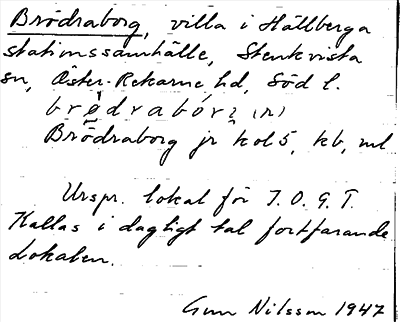 Brödraborg, villa i Hällberga
stationssamhälle, Stenkvista
sn, Öster-Rekarne hd, Söd l.
Brödraborg jr kol 5, kb, ml
Urspr. lokal för I.O.G.T.
Kallas i dagligt tal fortfarande
Lokalen.
Gun Nilsson 1947